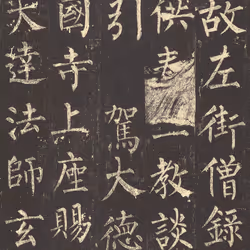 故左街僧錄
供奉三教談
引駕大德
國寺上座賜
大達法師玄